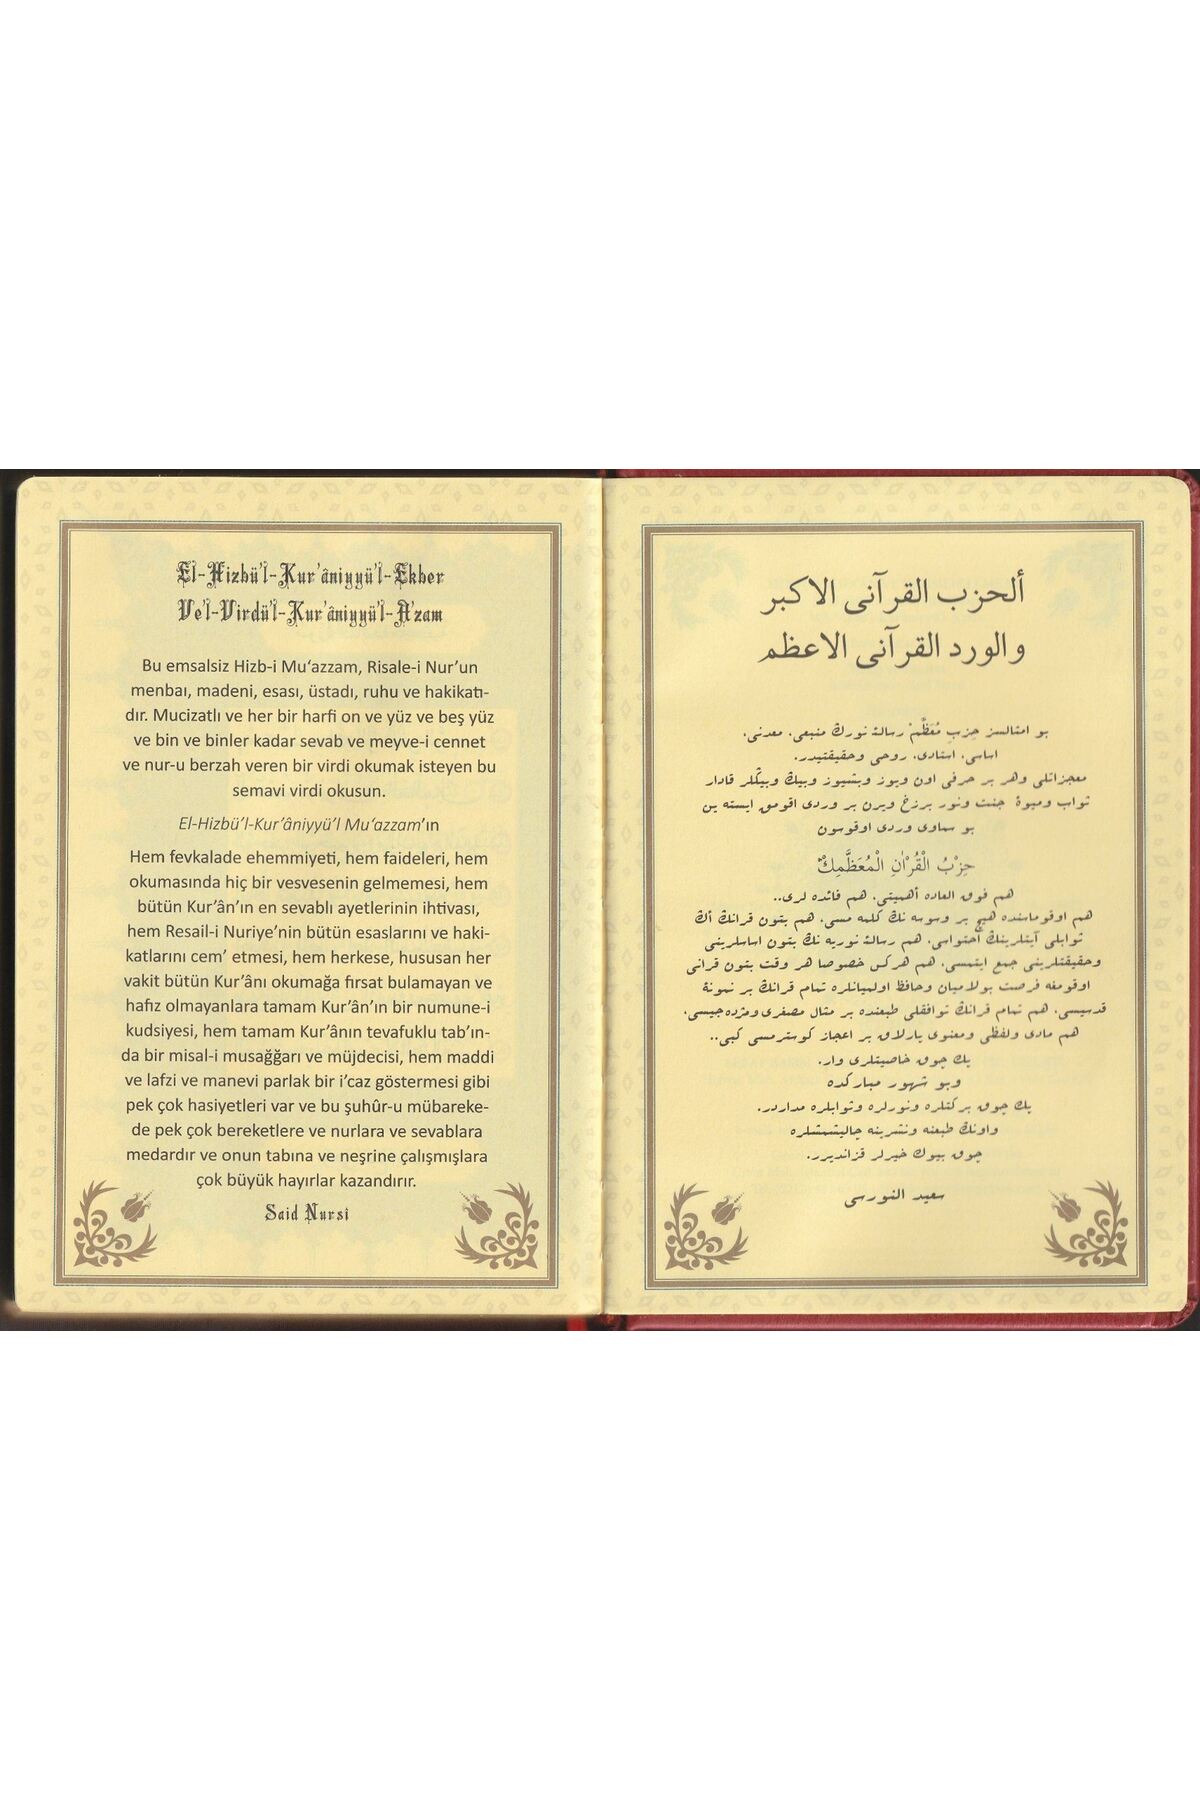 El-Hizbü'l-Kur'âniyyü'l-Ekber
Ve'l-Virdü'l-Kur'âniyyü'l-A'zam
Bu emsalsiz Hizb-i Mu‘azzam, Risale-i Nur’un
menbaı, madeni, esası, üstadı, ruhu ve hakikatı-
dır. Mucizatlı ve her bir harfi on ve yüz ve beş yüz
ve bin ve binler kadar sevab ve meyve-i cennet
ve nur-u berzah veren bir virdi okumak isteyen bu
semavi virdi okusun.
El-Hizbü’l-Kur’âniyyü’l Mu‘azzam’ın
Hem fevkalade ehemmiyeti, hem faideleri, hem
okumasında hiç bir vesvesenin gelmemesi, hem
bütün Kur’ân’ın en sevablı ayetlerinin ihtivası,
hem Resail-i Nuriye’nin bütün esaslarını ve haki-
katlarını cem’ etmesi, hem herkese, hususan her
vakit bütün Kur’ânı okumağa fırsat bulamayan ve
hafız olmayanlara tamam Kur’ân’ın bir numune-i
kudsiyesi, hem tamam Kur’ânın tevafuklu tab’ın-
da bir misal-i musağğarı ve müjdecisi, hem maddi
ve lafzi ve manevi parlak bir i’caz göstermesi gibi
pek çok hasiyetleri var ve bu şuhûr-u mübareke-
de pek çok bereketlere ve nurlara ve sevablara
medardır ve onun tabına ve neşrine çalışmışlara
çok büyük hayırlar kazandırır.
Said Nursî
ألحزب القرآنى الاكبر
والورد القرآنى الاعظم
بو امثالسز حِزبِ مُعَظَّمْ رسالۀ نورك منبعى، معدنى،
اساسى، استادى، روحى وحقيقتيدر.
معجزاتلى وهر بر حرفى اون ويوز وبشيوز وبيك وبيڭلر قادار
ثواب وميوۀ جنت ونور برزخ ويرن بر وردى اقومق ايسته ين
بو سماوى وردى اوقوسون
حِزْبُ الْقُرْاٰنِ الْمُعَظَّمِكْ
هم فوق العاده أهميتى، هم فائده لرى..
هم اوقوماسنده هيچ بر وسوسه نك كلمه مسى، هم بتون قرانك أڭ
ثوابلى آيتلرينك أحتواسى، هم رسالۀ نوريه نك بتون اساسلرينى
وحقيقتلرينى جمع ايتمسى، هم هركس خصوصا هر وقت بتون قرانى
اوقومغه فرصت بولاميان وحافظ اولميانلره تمام قرانك بر نمونۀ
قدسيسى، هم تمام قرانك توافقلى طبعنده بر مثال مصغرى ومژده جيسى،
هم مادى ولفظى ومعنوى پارلاق بر اعجاز كوسترمسى كبى..
پك چوق خاصيتلرى وار.
وبو شهور مباركده
پك چوق بركتلره ونورلره وثوابلره مداردر.
واونك طبعنه ونشرينه چاليشمشلره
چوق بيوك خيرلر قزانديرر.
سعيد النورسى